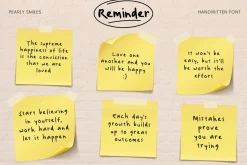 PEARLY SMILES
Reminder
HANDWRITTEN FONT
The supreme
happiness of life
is the conviction
that we are
loved
Love one
another and you
will be happy
:)
It won't be
easy, but it'll
be worth the
effort
Start believing
in yourself,
work hard and
let it happen
Each day's
growth builds
up to great
outcomes
Mistakes
prove
you are
trying